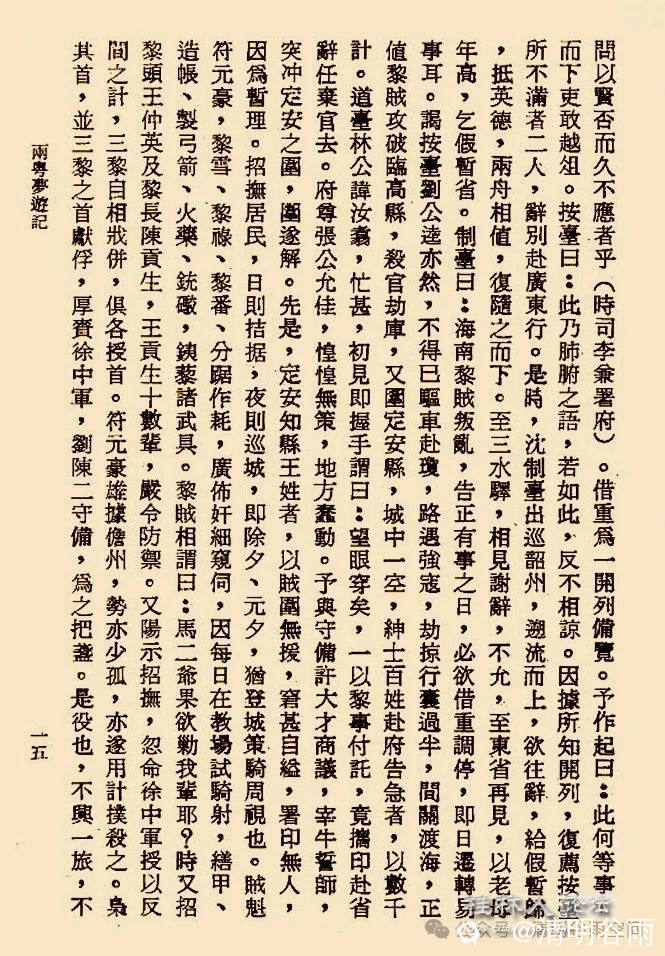 問以賢否而久不應者乎（時司李兼署府）。借重爲一開列備覽。予作起曰：此何等事，
而下吏敢越俎。按臺曰：此乃肺腑之語，若如此，反不相諒。因據所知開列，復薦按臺
所不滿者二人，辭別赴廣東行。是時，沈制臺出巡韶州，遡流而上，欲往辭，給假暫歸
，抵英德，兩舟相值，復隨之而下。至三水驛，相見謝辭，不允，至東省再見，以老母
年高，乞假暫省。制臺曰：海南黎賊叛亂，告正有事之日，必欲借重調停，即日遷轉易
事耳。謁按臺劉公逵亦然，不得已驅車赴瓊，路遇強寇，劫掠行囊過半，間關渡海，正
值黎賊攻破臨高縣，殺官劫庫，又圍定安縣，城中一空，紳士百姓赴府告急者，以數千
計。道臺林公諱汝翥，忙甚，初見即握手謂曰：望眼穿矣，一以黎事付託，竟攜印赴省
辭任棄官去。府尊張公允佳，惶惶無策，地方蠢動。予與守備許大才商議，宰牛誓師，
突冲定安之圍，圍遂解。先是，定安知縣王姓者，以賊圍無援，窘甚自縊，署印無人，
因爲暫理。招撫居民，日則拮据，夜則巡城，即除夕、元夕，猶登城策騎周視也。賊魁
符元豪，黎雪、黎祿、黎番、分踞作耗，廣佈奸細窺伺，因每日在教場試騎射，繕甲、
造帳、製弓箭、火藥、銃礮，鋏藜諸武具。黎賊相謂曰：馬二爺果欲勦我輩耶？時又招
黎頭王仲英及黎長陳貢生，王貢生十數輩，嚴令防禦。又陽示招撫，忽命徐中軍授以反
間之計，三黎自相戕併，俱各授首。符元豪雄據儋州，勢亦少孤，亦遂用計撲殺之。梟
其首，並三黎之首獻俘，厚賚徐中軍，劉陳二守備，爲之把盞。是役也，不興一旅，不
兩粵夢遊記
一五
桂林人論壇
公众号
@清明谷雨